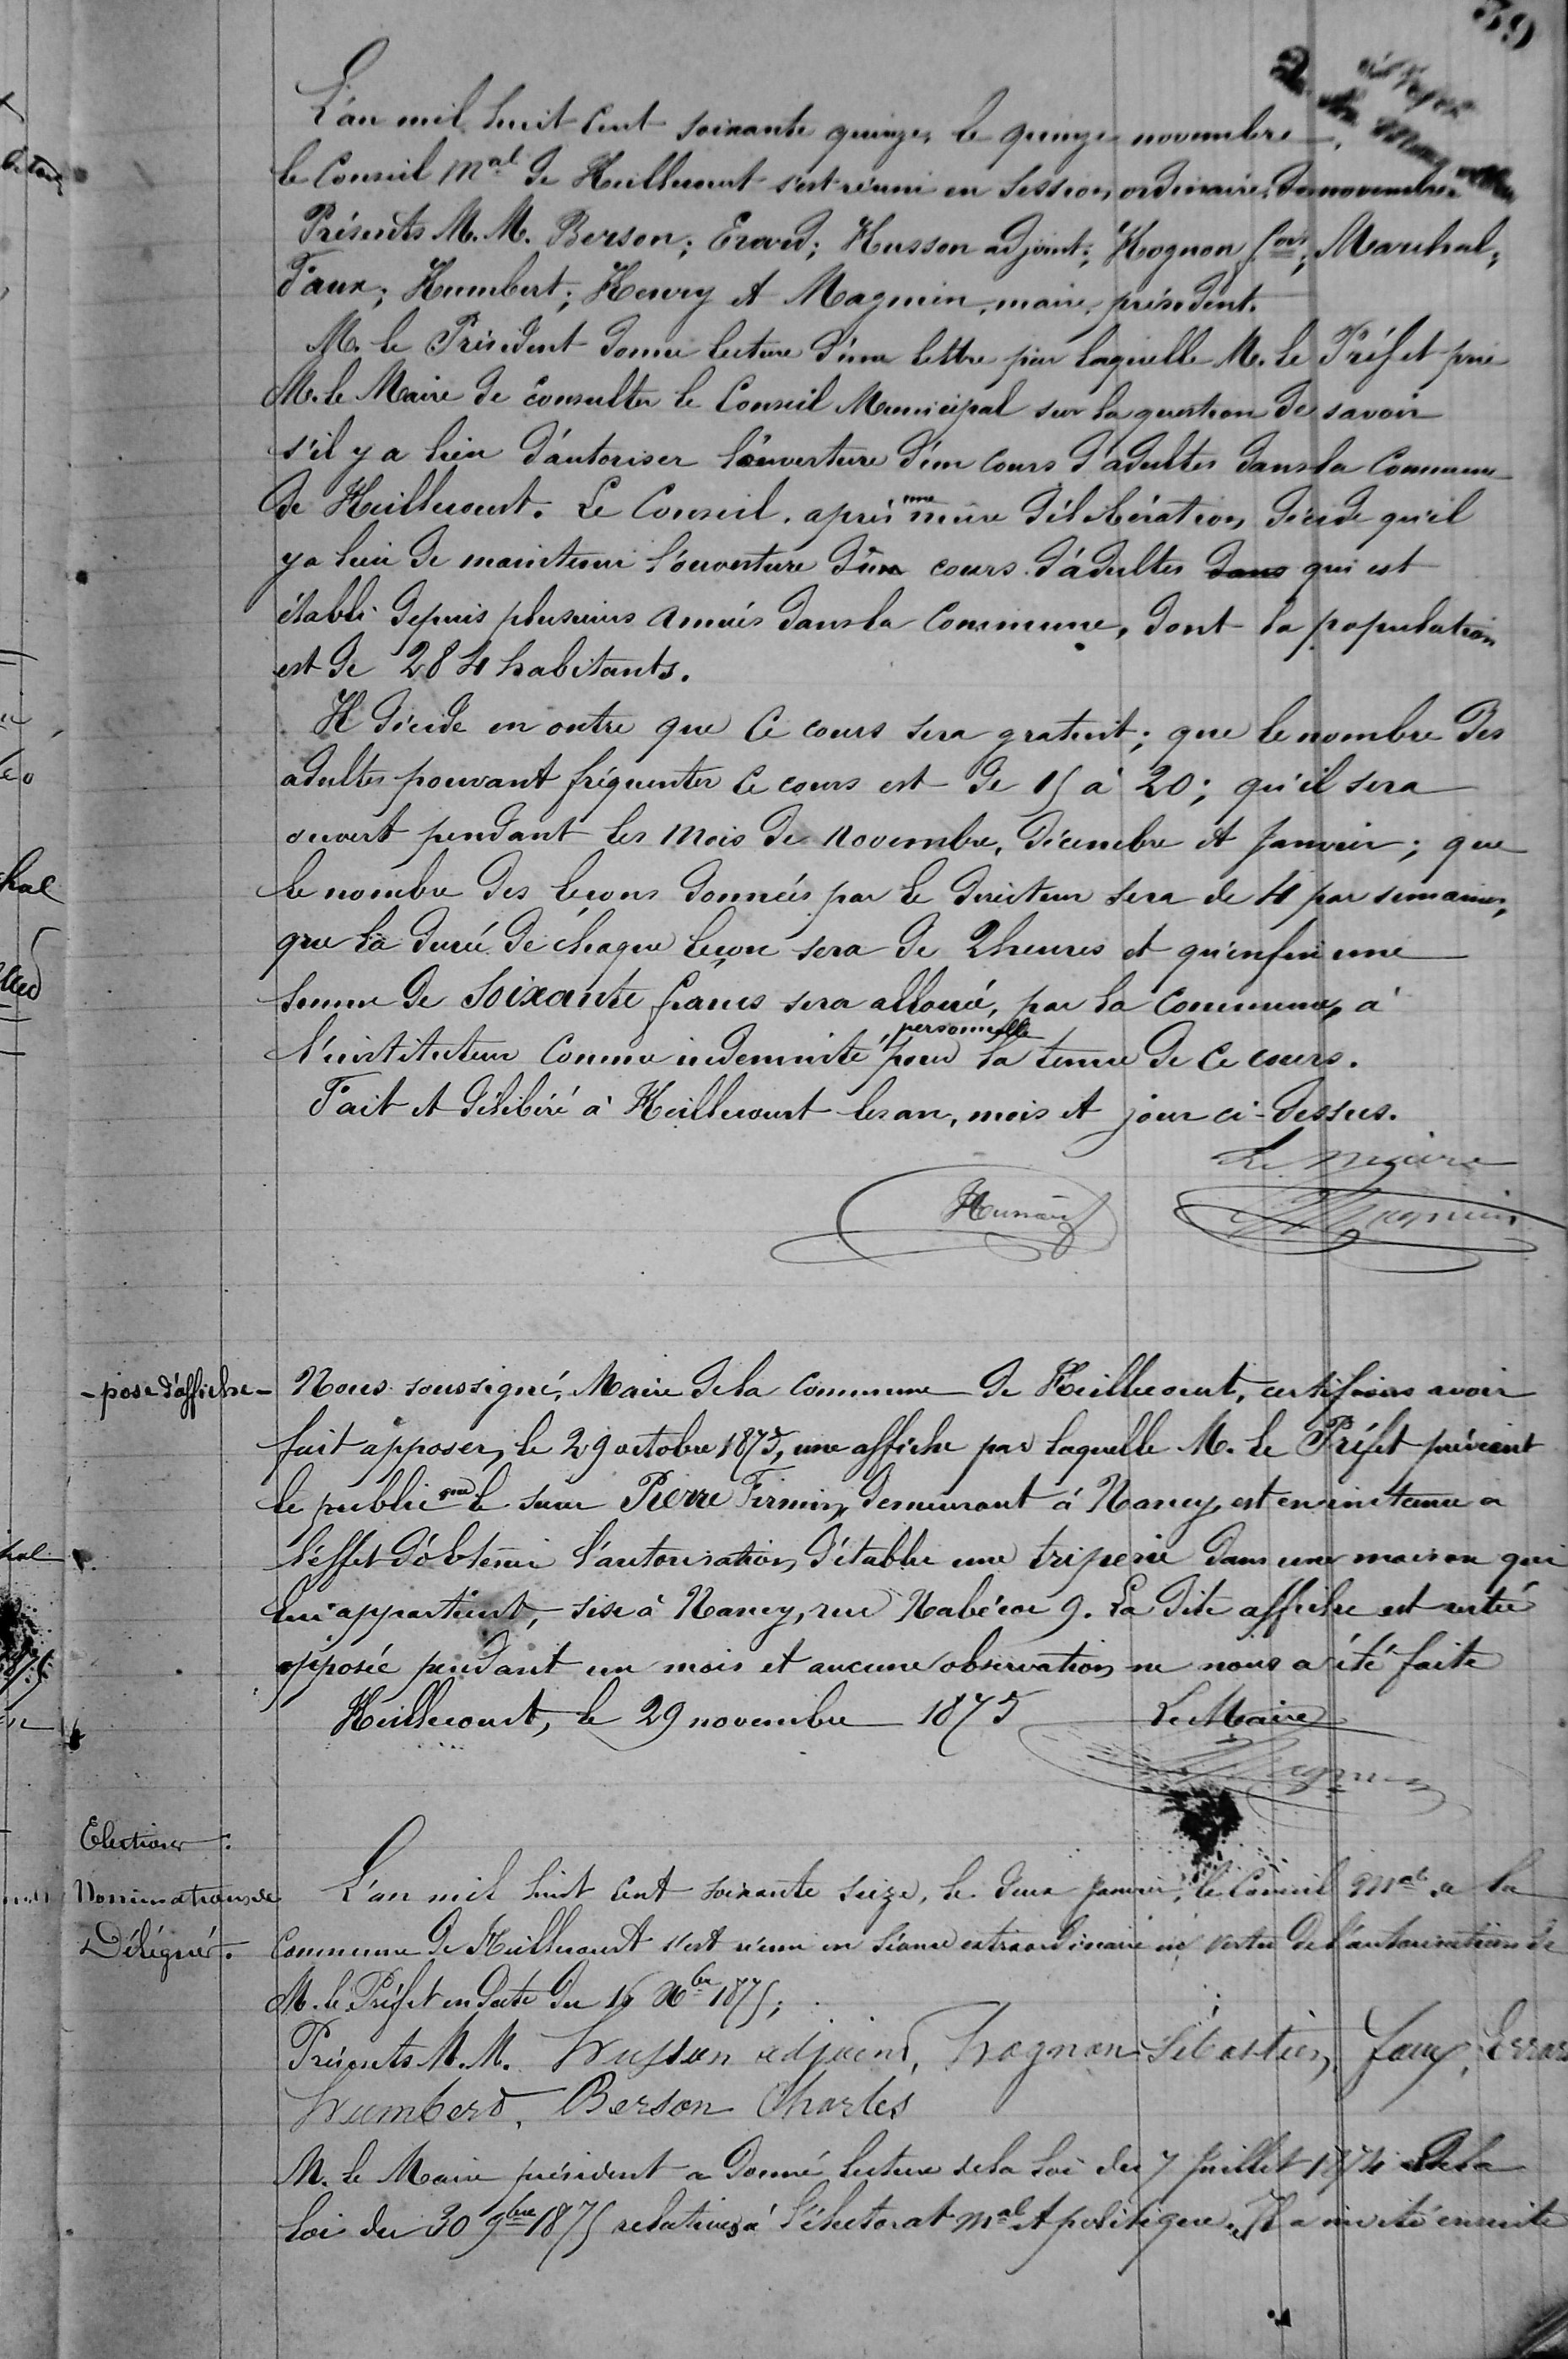 39
L'an mil huit cent soixante quinze, le quinze novembre,
le Conseil Mal de Heillecourt s'est réuni en session ordinaire de novembre.
Présents M.M. Berson; Erard; Husson adjoint; Hognon fois; Marchal;
Faux; Humbert; Henry et Magnien, maire, président.
M. le Président donne lecture d'une lettre par laquelle M. le Préfet prie
M. le Maire de consulter le Conseil Municipal sur la question de savoir
s'il y a lieu d'autoriser l'ouverture d'un cours d'adultes dans la Commune
de Heillecourt. Le Conseil, après une mûre délibération, décide qu'il
y a lieu de maintenir l'ouverture d'un cours d'adultes dans qui est
établi depuis plusieurs années dans la Commune, dont la population
est de 284 habitants.
Il décide en outre que ce cours sera gratuit; que le nombre des
adultes pouvant fréquenter ce cours est de 15 à 20; qu'il sera
ouvert pendant les mois de novembre, décembre et janvier; que
le nombre des leçons données par le directeur sera de 4 par semaines,
que la durée de chaque leçon sera de 2 heures et qu'enfin une
somme de soixante francs sera allouée, par la Commune, à
l'instituteur comme indemnité personnelle pour la tenue de ce cours.
Fait et délibéré à Heillecourt les an, mois et jour ci-dessus.
Le Maire
Magnien
- pose d'affiche -
Nous soussigné, Maire de la commune de Heillecourt, certifions avoir
fait apposer, le 29 octobre 1875, une affiche par laquelle M. le Préfet prévient
le public que le sieur Pierre Firmin, demeurant à Nancy, est en instance à
l'effet d'obtenir l'autorisation d'établir une triperie dans une maison qui
lui appartient, sise à Nancy, rue Nabécor 9. La dite affiche est restée
apposée pendant un mois et aucune observation ne nous a été faite
Heillecourt, le 29 novembre 1875
Le Maire
Magnien
Elections:
Nominations de
Délégué.
L'an mil huit cent soixante seize, le deux janvier, le Conseil Mal de la
Commune de Heillecourt s'est réuni en séance extraordinaire en vertu de l'autorisation de
M. le Préfet en date du Xbre 1875;
Présents M.M. Husson adjoint, hognon Sébastien, faux, Errar
humbert, Berson Charles
M. le Maire président a donné lecture de la loi du 7 Juillet 1874 de la
loi du 30 9bre 1875 relatives à l'électorat mal et politique. Il a invité ensuite